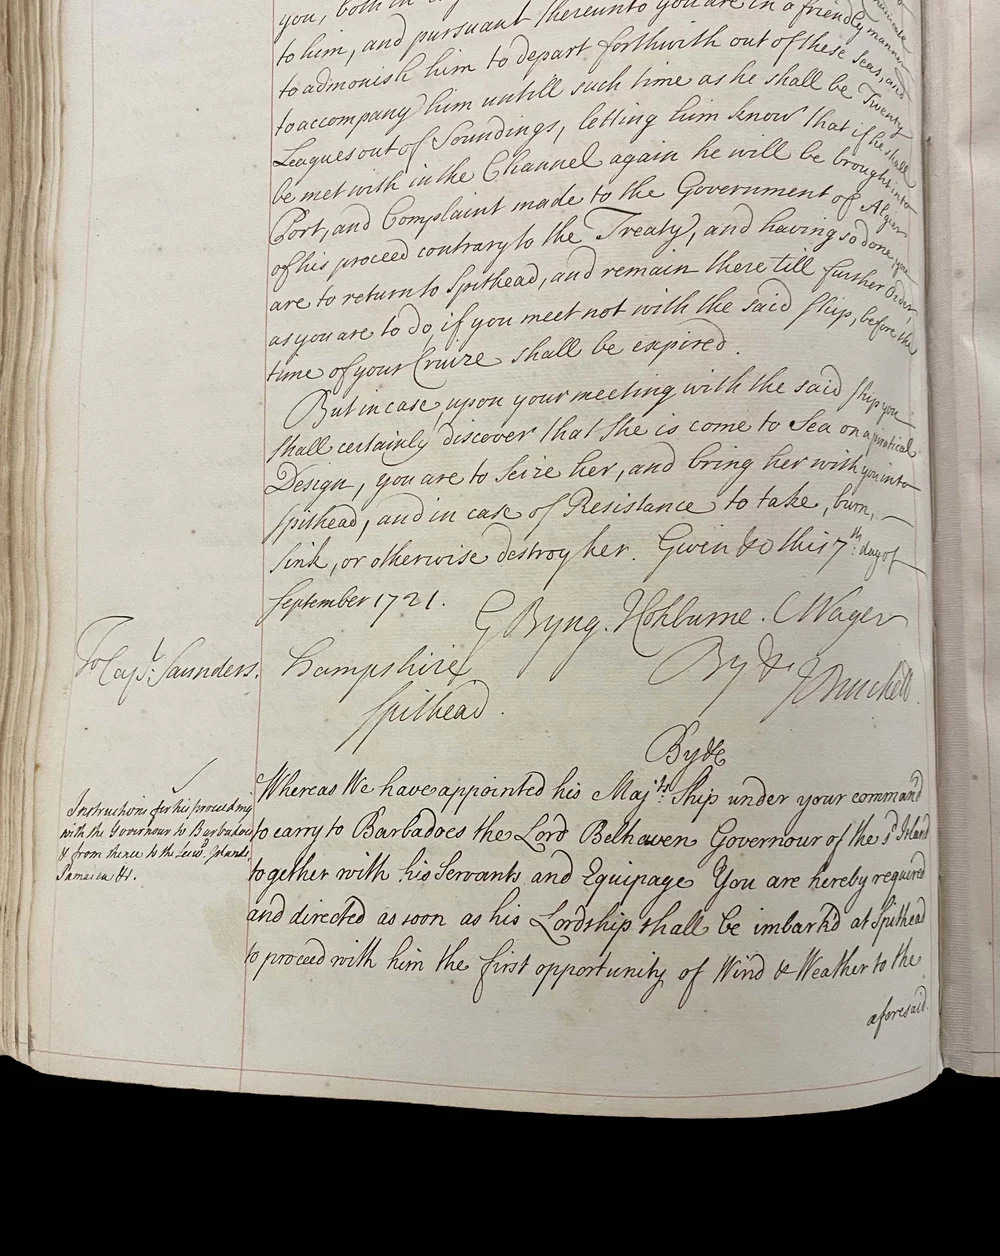 you, both in
to him, and pursuant thereunto you are in a friendly manner
to admonish him to depart forthwith out of these Seas, and
to accompany him untill such time as he shall be Twenty
Leagues out of Soundings, letting him know that if he shall
be met with in the Channel again he will be brought into
Port, and Complaint made to the Government of Algier
of his proceed contrary to the Treaty, and having so done you
are to return to Spithead, and remain there till further Order,
as you are to do if you meet not with the said Ship, before the
time of your Cruize shall be expired.
But in case upon your meeting with the said Ship you
shall certainly discover that she is come to Sea on a piratical
Design, you are to Seize her, and bring her with you into
Spithead, and in case of Resistance to take, burn,
sink, or otherwise destroy her. Given &c this 7th day of
September 1721.
G Byng. J Cokburne. C Wager
To Capt. Saunders. Hampshire By &c J Burchett
Spithead.
By &c
Instructions for his proceeding
with the Governour to Barbadoes
& from thence to the Leewd. Islands,
Jamaica &c.
Whereas We have appointed his Majts. Ship under your command
to carry to Barbadoes the Lord Belhaven Governour of the sd. Island
together with his Servants and Equipage You are hereby required
and directed as soon as his Lordship shall be imbark'd at Spithead
to proceed with him the first opportunity of Wind & Weather to the
aforesaid.